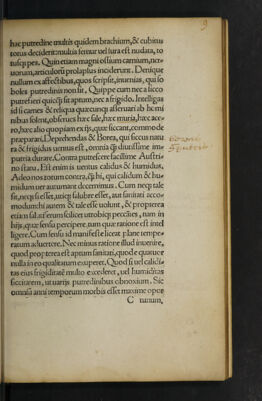 9
hac putredine multis quidem brachium, & cubitus
totus decidente: multis femur uel sura est nudata, to
tusq; pes. Quin etiam magni ossium carnium, ner-
uorum, articulorũ prolapsus inciderunt. Denique
nullum ex affectibus, quos scripsit, inuenias, qui so
boles putredinis non sit. Quippe cum nec a sicco
putrefieri quicq̃ sit aptum, nec a frigido. Intelligas
id si carnes & reliqua quæcunq; asseruari ab homi
nibus solent, obserues hæc sale, hæc muria, hæc ace-
to, hæc alio quopiam ex ijs, quæ siccant, commode
præparari. Deprehendas & Borea, qui siccus natu
ra & frigidus uentus est, omnia q̃ diutissime im-
putria durare. Contra putrescere facillime Austri-
no statu. Est enim is uentus calidus & humidus.
Adeo nos totum contra, q̃ hi, qui calidum & hu-
midum uer autumant decernimus. Cum neq; tale
sit, neq; si esset, utiq; salubre esset, aut sanitati acco-
modum: hi autem & tale esse uolunt, & propterea
etiam salutiferum scilicet utrobiq; peccãtes, tum in
hijs, quæ sensu percipere, tum quæ ratione est intel
ligere. Cum sensu id manifeste liceat plane tempe-
ratum aduertere. Nec minus ratione illud inuenire,
quod propterea est aptum sanitati, quod e quatuor
nulla in eo qualitatum exuperet. Quod si uel calidi-
tas eius frigiditatẽ multo excederet, uel humiditas
siccitatem, ut uarijs putredinibus obnoxium. Sic
omniũ anni temporum morbis esset maxime opor
C tunum,